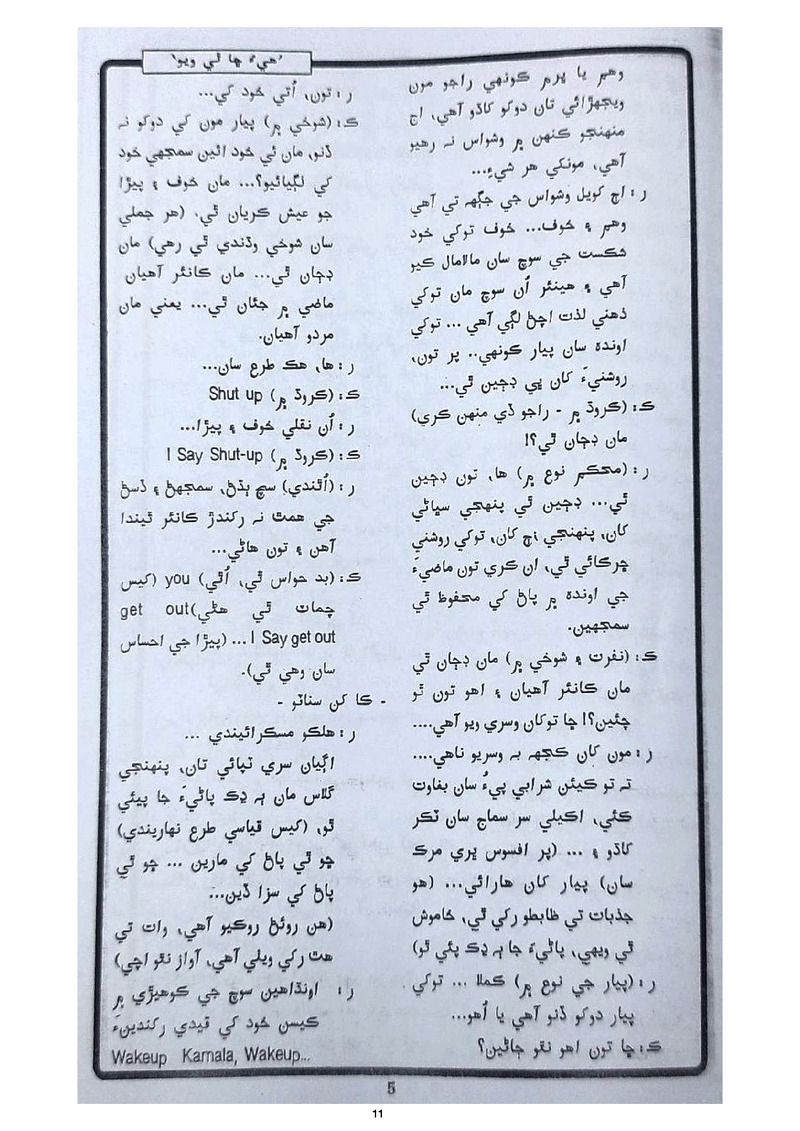 ’هيءُ ڇا ٿي ويو‘
وهم يا ڀرم ڪونهي راجو مون
ويجهڙائي تان دوکو کاڌو آهي، اڄ
منهنجو ڪنهن ۾ وشواس نہ رهيو
آهي، مونکي هر شيءِ...
ر : اڄ کويل وشواس جي جڳهہ تي آهي
وهم ۽ خوف... خوف توکي خود
شڪست جي سوچ سان مالامال ڪيو
آهي ۽ هينئر اُن سوچ مان توکي
ذهني لذت اچڻ لڳي آهي ... توکي
اونده سان پيار ڪونهي.. پر تون،
روشنيءَ کان ڀي ڊڄين ٿي...
ڪ: (ڪروڌ ۾ - راجو ڏي منهن ڪري)
مان ڊڄان ٿي؟!
ر : (محڪم نوع ۾) ها، تون ڊڄين
ٿي... ڊڄين ٿي پنهنجي سڀاڻي
کان، پنهنجي اڄ کان، توکي روشني
ڇرڪائي ٿي، ان ڪري تون ماضيءَ
جي اونده ۾ پاڻ کي محفوظ ٿي
سمجهين.
ڪ: (نفرت ۽ شوخي ۾) مان ڊڄان ٿي
مان ڪانئر آهيان ۽ اهو تون ٿو
چئين؟! ڇا توکان وسري ويو آهي....
ر : مون کان ڪجهہ بہ وسريو ناهي....
تہ تو ڪيئن شرابي پيءُ سان بغاوت
ڪئي، اڪيلي سر سماج سان ٽڪر
کاڌو ۽ ... (پر افسوس ڀري مرڪ
سان) پيار کان هارائي... (هو
جذبات تي ظابطو رکي ٿي، خاموش
ٿي ويهي، پاڻيءَ جا ٻہ ڍڪ پئي ٿو)
ر : (پيار جي نوع ۾) ڪملا ... توکي
پيار دوکو ڏنو آهي يا اُهو...
ڪ: ڇا تون اهو نٿو ڄاڻين؟
ر : تون، اُتي خود کي...
ڪ: (شوخي ۾) پيار مون کي دوکو نہ
ڏنو، مان ئي خود ائين سمجهي خود
کي لڳيائيو؟... مان خوف ۽ پيڙا
جو عيش ڪريان ٿي، (هر جملي
سان شوخي وڌندي ٿي رهي) مان
ڊڄان ٿي... مان ڪانئر آهيان
ماضي ۾ جئان ٿي... يعني مان
مردو آهيان.
ر : ها، هڪ طرع سان...
ڪ: (ڪروڌ ۾) Shut up
ر : اُن نقلي خوف ۽ پيڙا...
ڪ: (ڪروڌ ۾) I Say Shut-up !
ر : (اُٿندي) سچ ٻڌڻ، سمجهڻ ۽ ڏسڻ
جي همٿ نہ رکندڙ ڪانئر ٿيندا
آهن ۽ تون هاڻي...
ڪ: (بد حواس ٿي، اُٿي) you (کيس
چمات ٿي هڻي)get out
I Say get out ... (پيڙا جي احساس
سان وهي ٿي).
- ڪا کن سناٽو -
ر : هلڪو مسڪرائيندي ...
اڳيان سري ٽپائي تان، پنهنجي
گلاس مان ٻہ ڍڪ پاڻيءَ جا پيئي
ٿو، (کيس قياسي طرع نهاريندي)
ڇو ٿي پاڻ کي مارين ... ڇو ٿي
پاڻ کي سزا ڏين...
(هن روئڻ روڪيو آهي، وات تي
هٿ رکي ويلي آهي، آواز نٿو اچي)
ر : اونڌاهين سوچ جي کوهيڙي ۾
ڪيسن خود کي قيدي رکندينءَ
Wakeup Kamala, Wakeup...
5
11